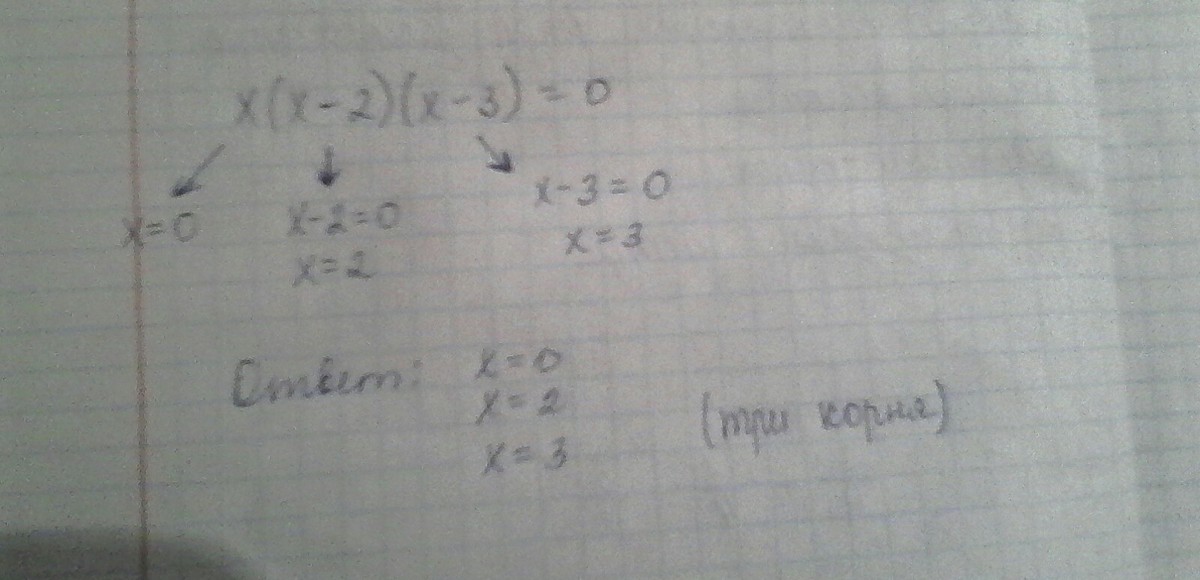 x(x-2)(x-3) = 0
x=0 x-2=0 x-3=0
x=2 x=3
Ответ: x=0
x=2
x=3 (три корня)